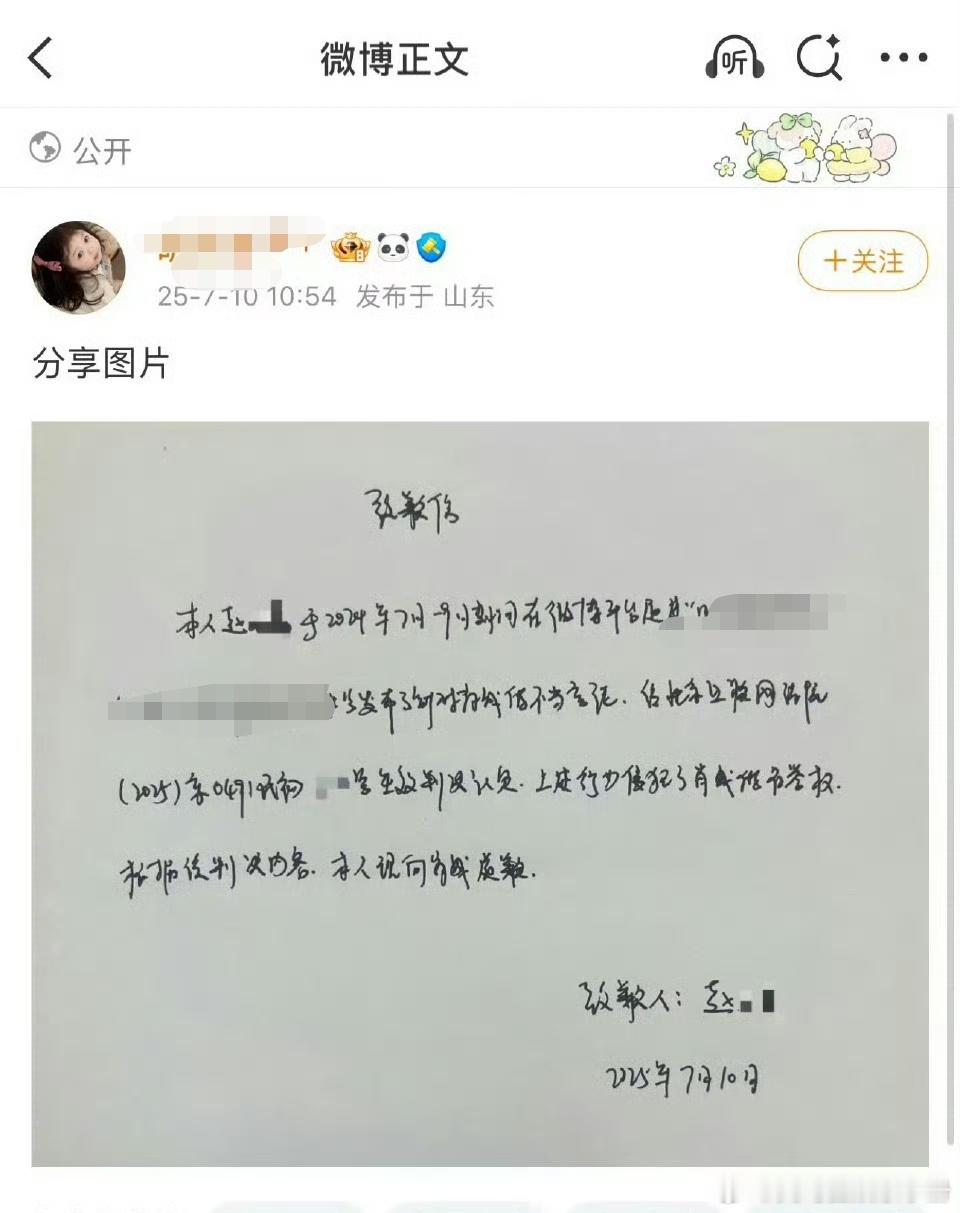 微博正文
听
公开
25-7-10 10:54 发布于 山东
+关注
分享图片
致歉信
本人赵 于2024年7月-9月期间在微博平台通过"
发布了针对肖战的不当言论. 经北京互联网法院
(2025)京0491民初 号生效判决认定. 上述行为侵犯了肖战的名誉权.
根据该判决内容. 本人现向肖战致歉.
致歉人: 赵
2025年7月10日